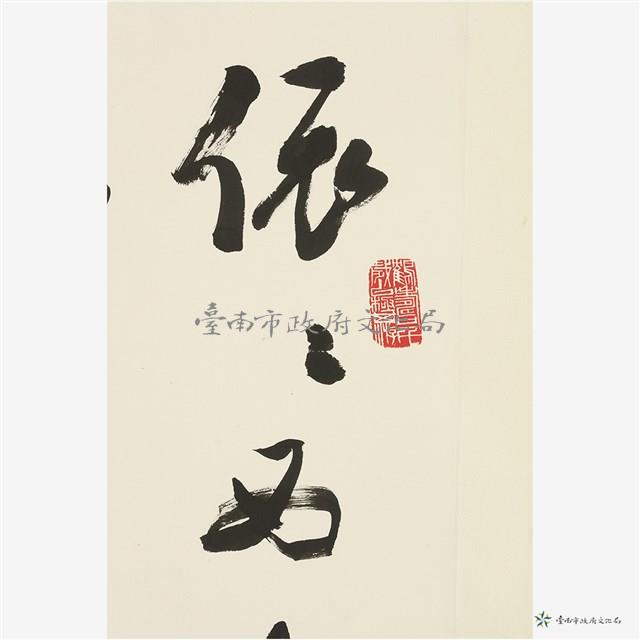 依〻西
臺南市政府文化局
臺南市政府文化局